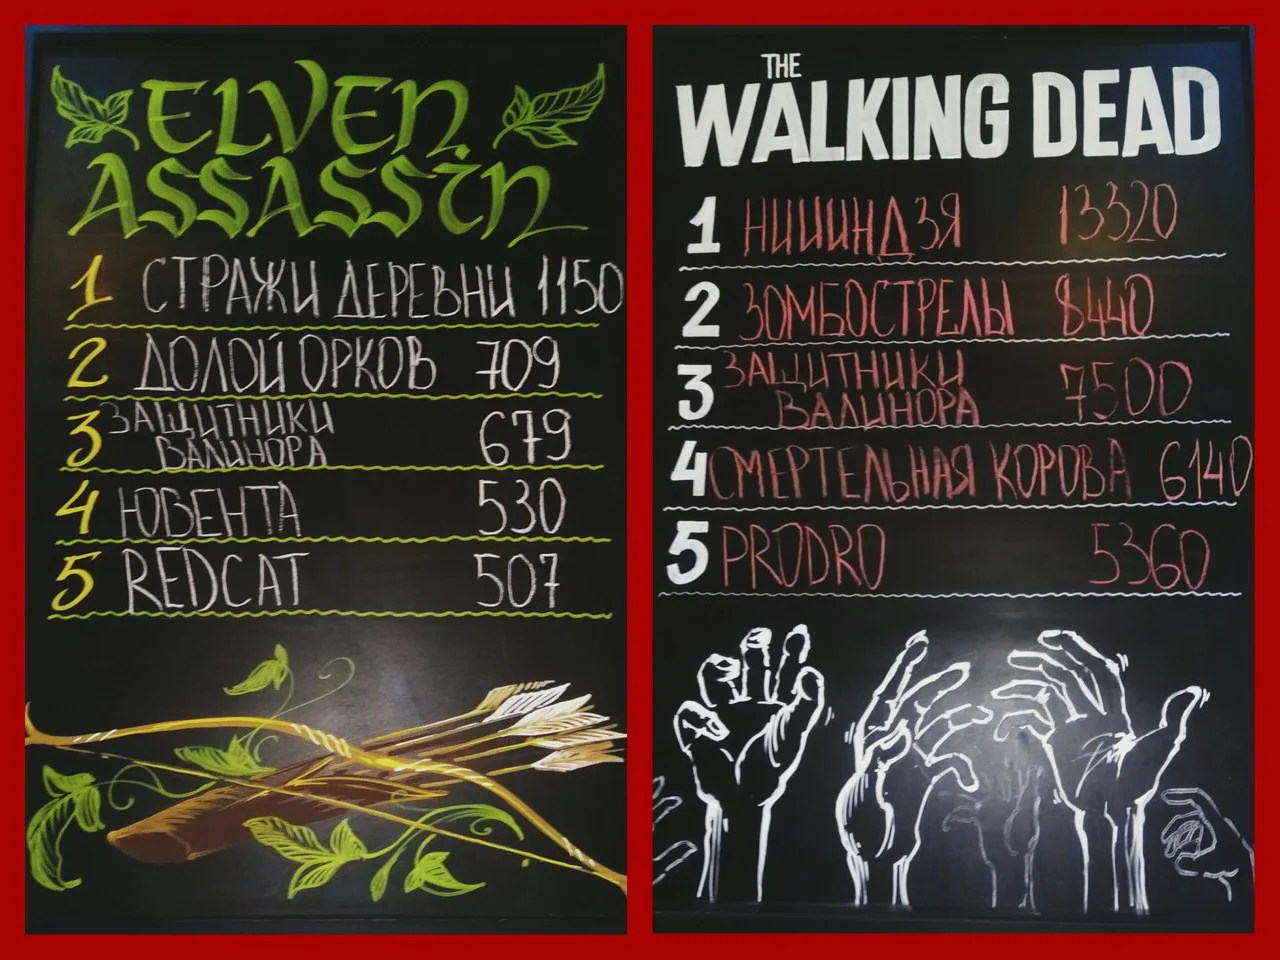 ELVEN
ASSASSIN
1 СТРАЖИ ДЕРЕВНИ 1150
2 ДОЛОЙ ОРКОВ 709
3 ЗАЩИТНИКИ
ВАЛИНОРА 679
4 ЮВЕНТА 530
5 REDCAT 507
THE
WALKING DEAD
1 НИИИНДЗЯ 13320
2 ЗОМБОСТРЕЛЫ 8440
3 ЗАЩИТНИКИ
ВАЛИНОРА 7500
4 СМЕРТЕЛЬНАЯ КОРОВА 6140
5 PRODRO 5360